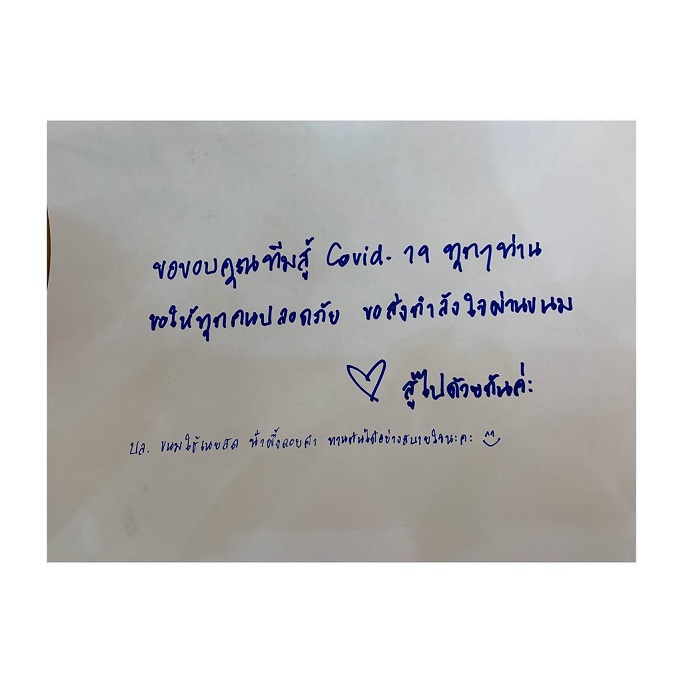 ขอขอบคุณทีมสู้ Covid-19 ทุกๆท่าน
ขอให้ทุกคนปลอดภัย ขอส่งกำลังใจผ่านขนม
สู้ไปด้วยกันค่ะ
ปล. ขนมใช้เนยสด น้ำผึ้งดอยคำ ทานกันได้อย่างสบายใจนะคะ